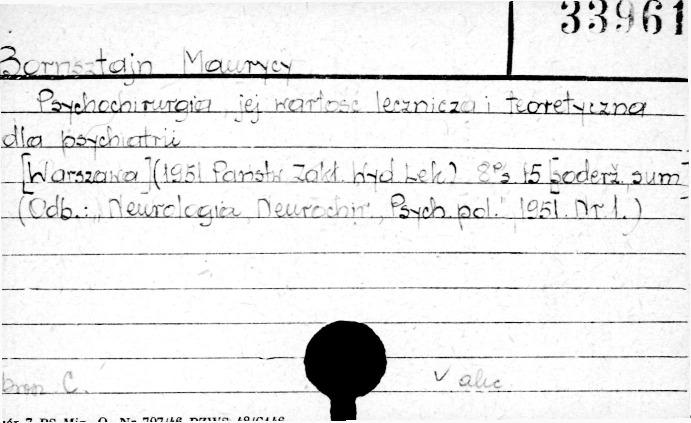 33961
Bornsztajn Maurycy
Psychochirurgia, jej wartość lecznicza i teoretyczna
dla psychiatrii
[Warszawa] (1951 Państw. Zakł. Wyd. Lek.) 8° s. 15 [poderż., sum
(Odb.: „Neurologia, Neurochir., Psych. pol." 1951. Nr. 1.)
C. V akc